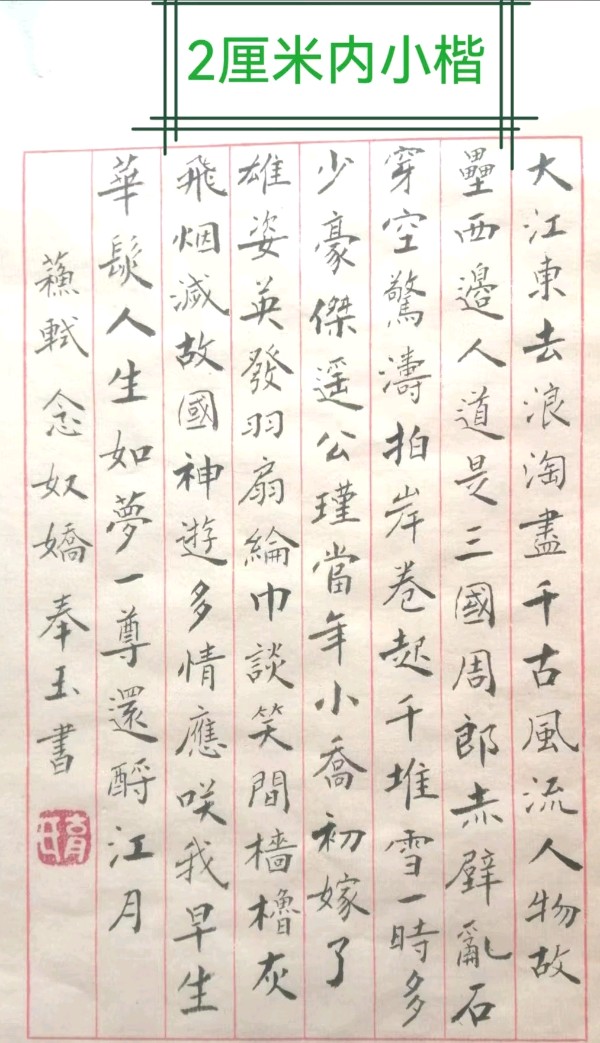 2厘米内小楷
大江東去浪淘盡千古風流人物故
壘西邊人道是三國周郎赤壁亂石
穿空驚濤拍岸卷起千堆雪一時多
少豪傑遥公瑾當年小喬初嫁了
雄姿英發羽扇綸巾談笑間檣櫓灰
飛烟滅故國神遊多情應咲我早生
華髮人生如夢一尊還酹江月
蘇軾念奴嬌奉玉書